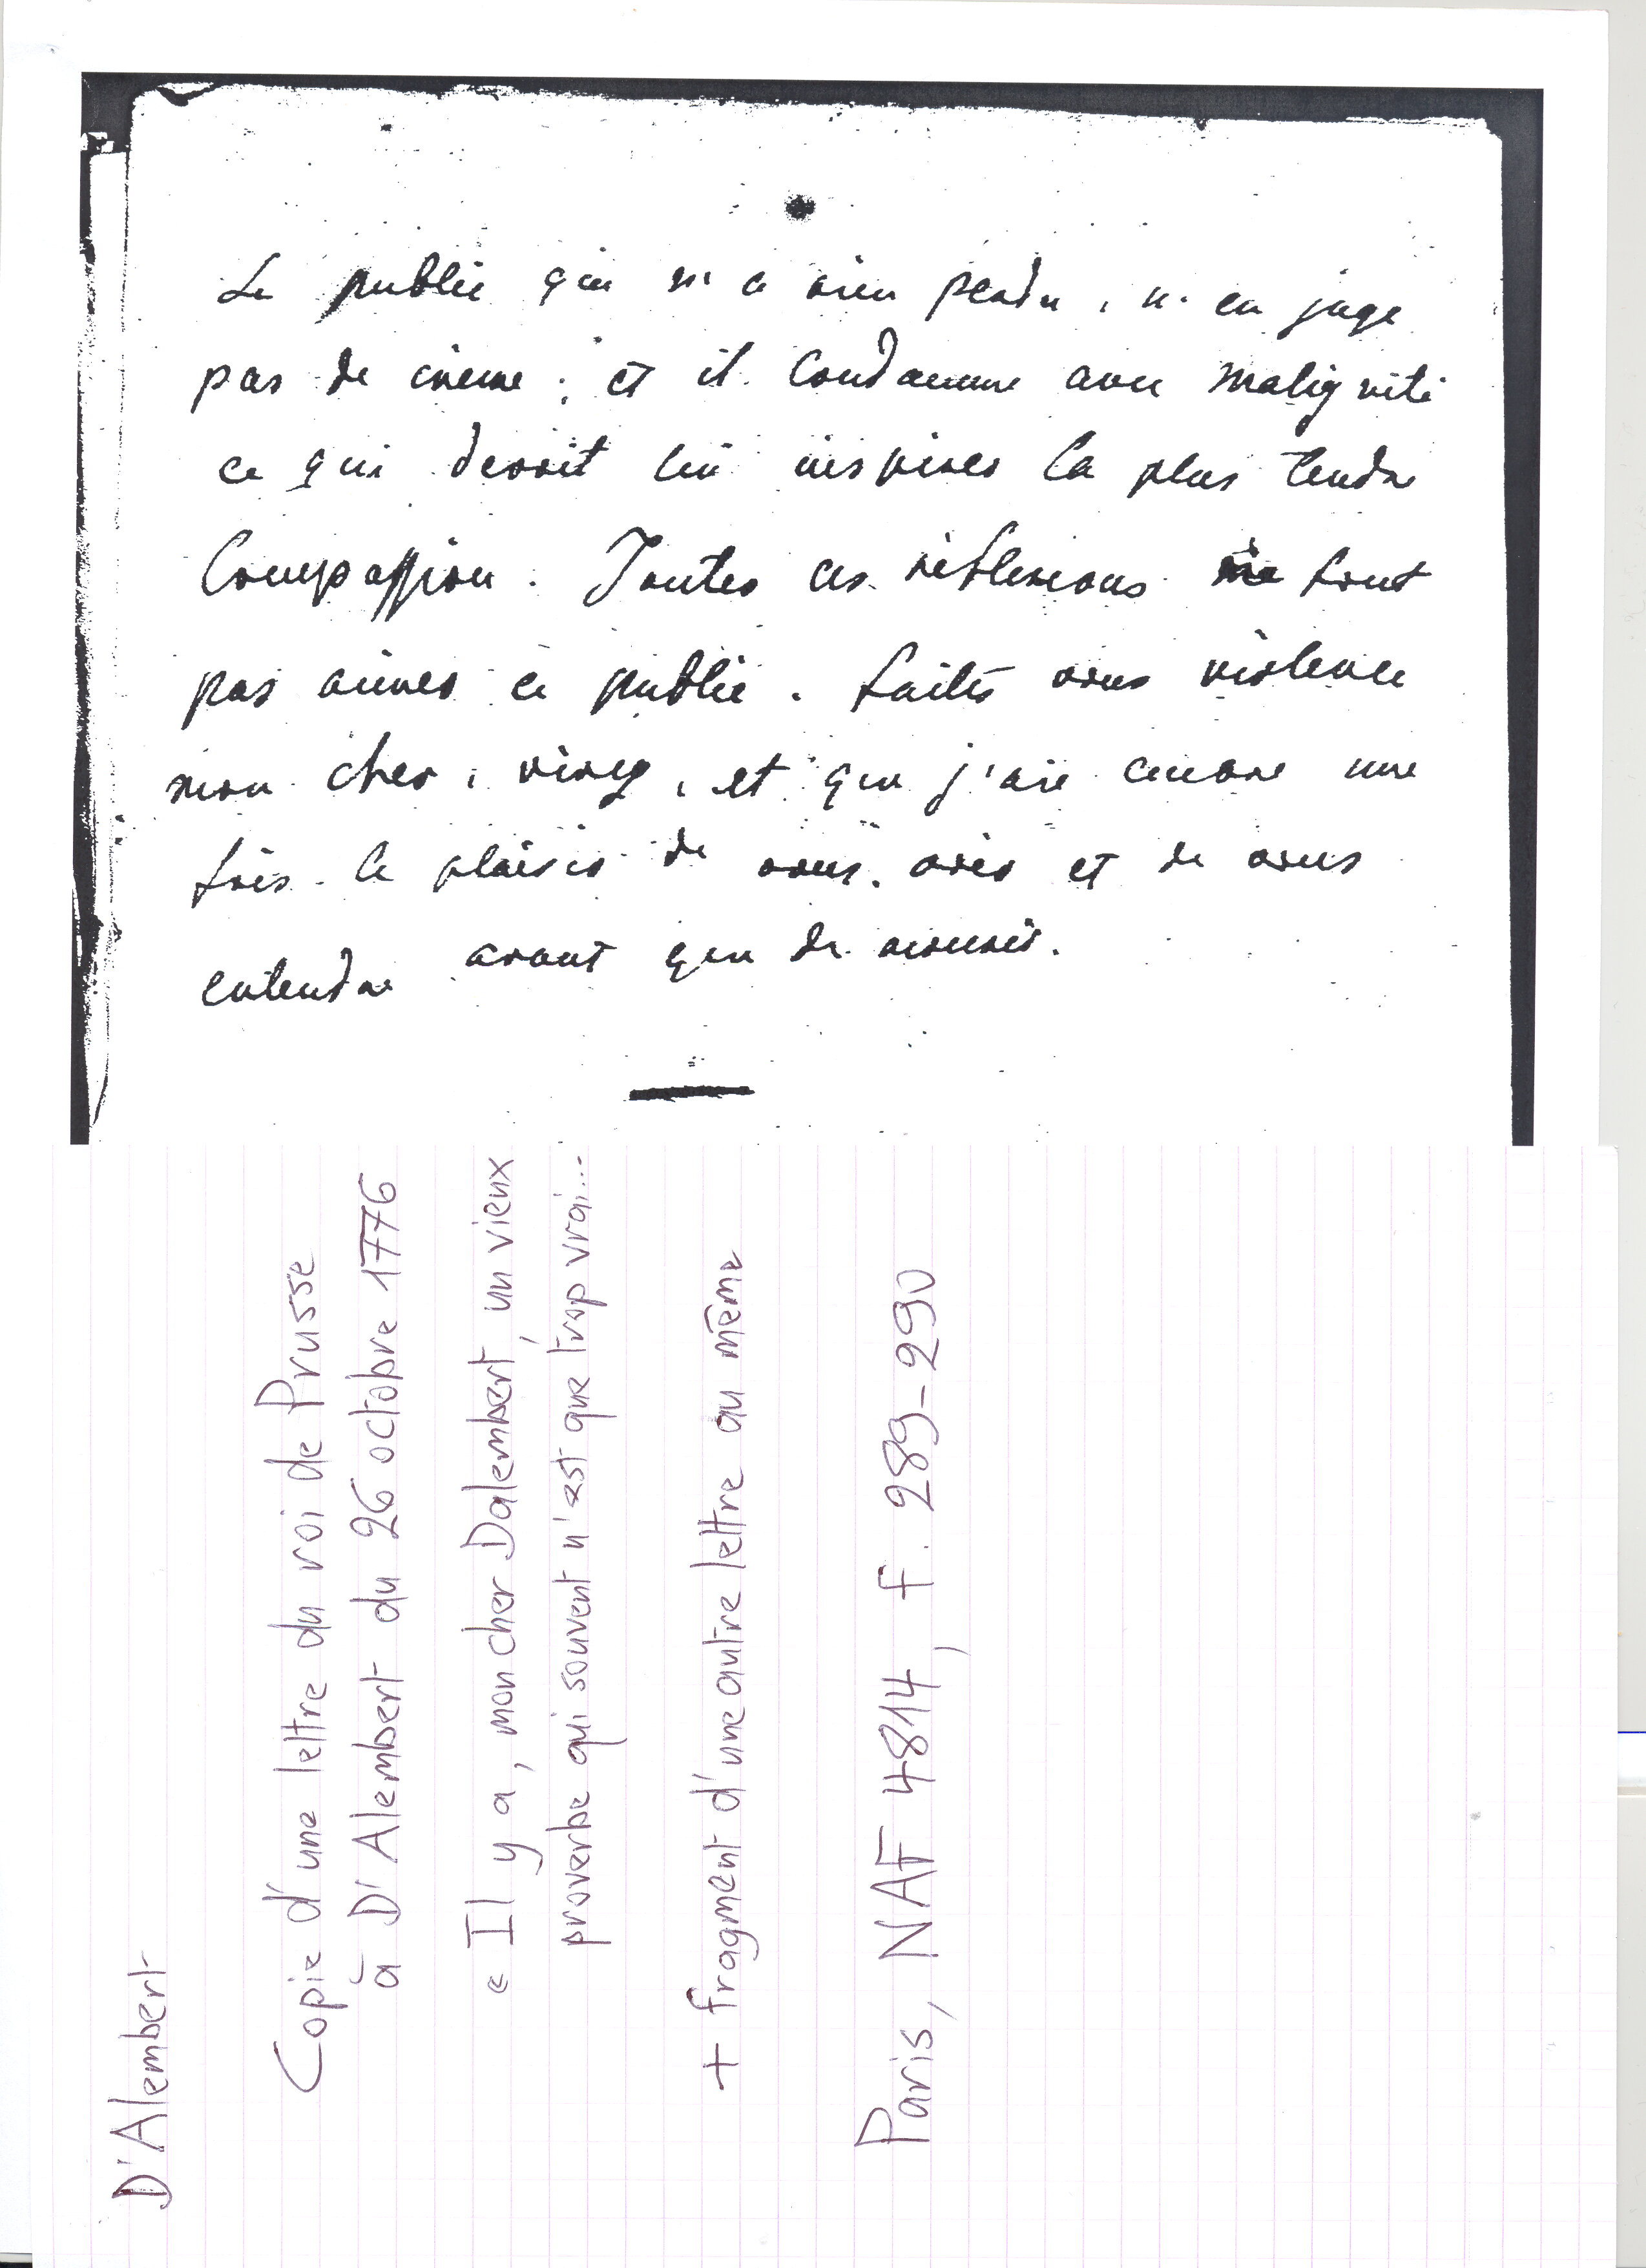 Le public qui n'a rien perdu, n'en juge
pas de même ; et il condamne avec malignité
ce qui devroit lui inspirer la plus tendre
Compassion. Toutes ces réflexions ne font
pas aimer ce public. faites vous violence
mon cher, vivez, et que j'aie encore une
fois le plaisir de vous voir et de vous
entendre avant que de mourir.
D'Alembert
Copie d'une lettre du roi de Prusse
à D'Alembert du 26 octobre 1776
« Il y a, mon cher Dalembert, un vieux
proverbe qui souvent n'est que trop vrai...
+ fragment d'une autre lettre au même
Paris, NAF 4814, f. 289-290